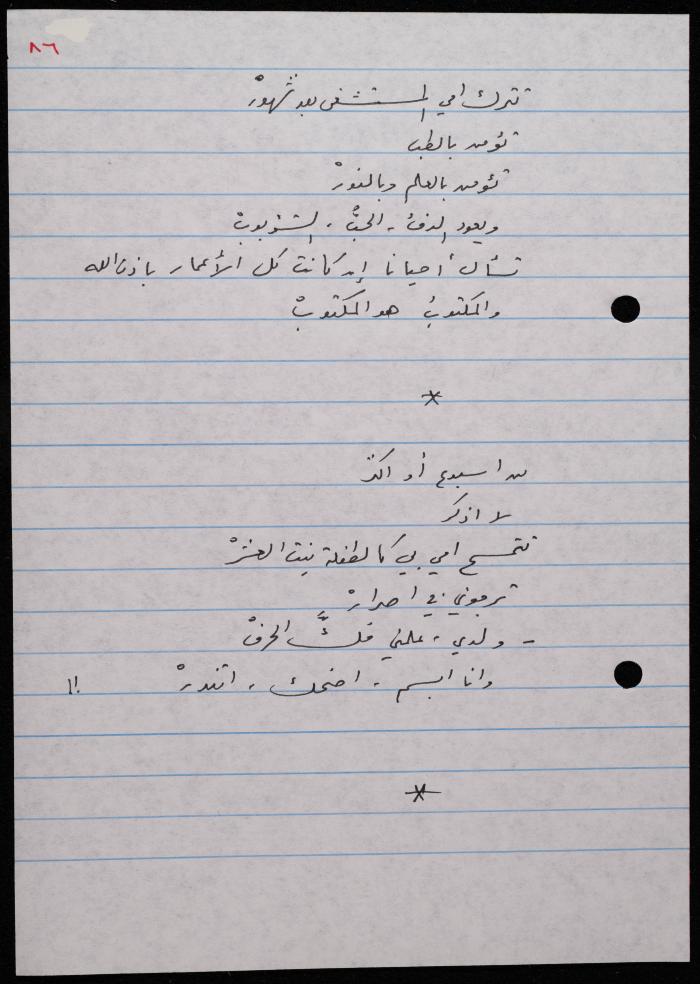 ٨٦
تترك امي المستشفى بعد شهورْ
تؤمن بالطب
تؤمن بالعلم وبالنورْ
ويعود الدفءُ ، الحبُّ ،
تسألُ أحيانا إن كانت كل الأعمار باذن الله
والمكتوبُ هو المكتوبْ
*
من اسبوع أو اكثر
لا اذكر
تتمسح امي بي كالطفلة بنت العشرْ
ترجوني في اصرارْ
- ولدي ، علمني فكَّ الحرفْ
وانا ابسم ، اضحك ، اتندرْ !!
*